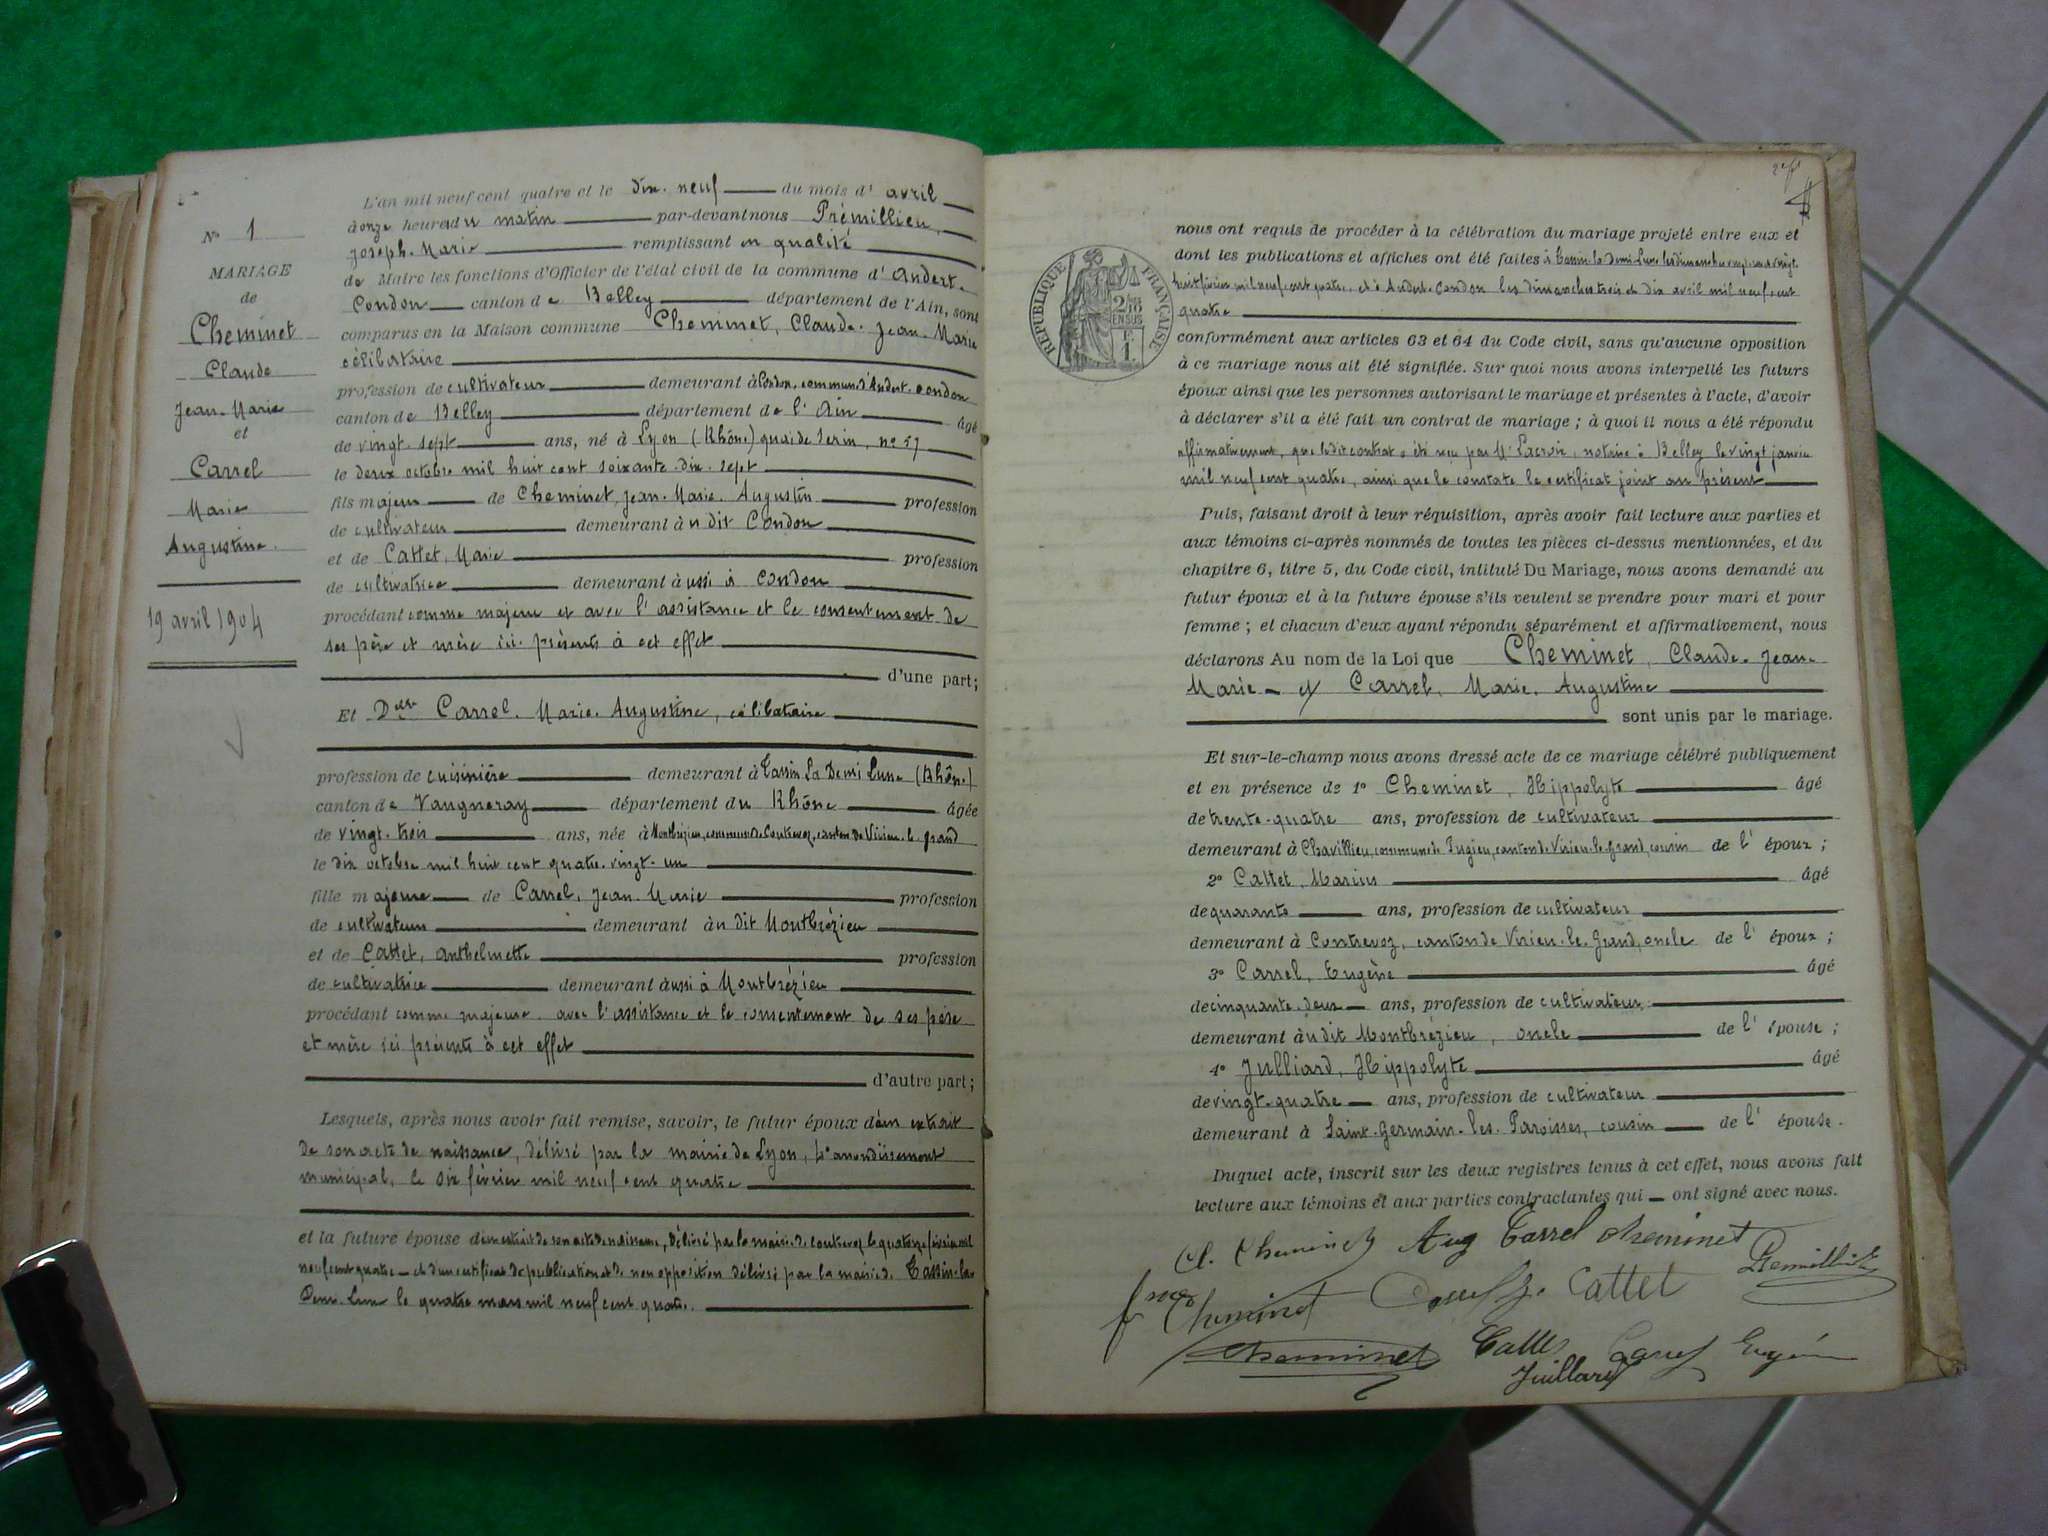 N° 1
MARIAGE
de
Cheminet
Claude
Jean-Marie
et
Carrel
Marie
Augustine.
19 avril 1904
L'an mil neuf cent quatre et le dix-neuf du mois d'avril
à onze heures du matin par-devant nous Prémillieu,
Joseph-Marie remplissant en qualité
de Maire les fonctions d'Officier de l'état civil de la commune d'Andert-
Condon canton de Belley département de l'Ain, sont
comparus en la Maison commune Cheminet, Claude-Jean-Marie
célibataire
profession de cultivateur demeurant à Condon, commune d'Andert-Condon
canton de Belley département de l'Ain âgé
de vingt-sept ans, né à Lyon (Rhône) quai de Serin, n° 57
le deux octobre mil huit cent soixante-dix-sept
fils majeur de Cheminet, Jean-Marie-Augustin profession
de cultivateur demeurant au dit Condon
et de Cattet, Marie profession
de cultivatrice demeurant aussi à Condon
procédant comme majeur et avec l'assistance et le consentement de
ses père et mère ici présents à cet effet
d'une part;
Et Delle Carrel, Marie-Augustine, célibataire
profession de cuisinière demeurant à Tassin La Demi Lune (Rhône)
canton de Vaugneray département du Rhône âgée
de vingt-trois ans, née à Montbrézieu, commune de Contrevoz, canton de Virieu-le-grand
le dix octobre mil huit cent quatre-vingt-un
fille majeure de Carrel, Jean-Marie profession
de cultivateur demeurant au dit Montbrézieu
et de Cattet, Anthelmette profession
de cultivatrice demeurant aussi à Montbrézieu
procédant comme majeure avec l'assistance et le consentement de ses père
et mère ici présents à cet effet
d'autre part;
Lesquels, après nous avoir fait remise, savoir, le futur époux d'un extrait
de son acte de naissance, délivré par la mairie de Lyon, 4e arrondissement
municipal, le six février mil neuf cent quatre
et la future épouse d'un extrait de son acte de naissance, délivré par la mairie de Contrevoz le quatorze février mil
neuf cent quatre et d'un certificat de publication et de non opposition délivré par la mairie de Tassin-la-
Demi-Lune le quatre mars mil neuf cent quatre.
RÉPUBLIQUE FRANÇAISE
2/10
EN SUS
1F.
nous ont requis de procéder à la célébration du mariage projeté entre eux et
dont les publications et affiches ont été faites à Tassin-la-Demi-Lune les dimanches vingt un et vingt
huit février mil neuf cent quatre, et à Andert-Condon les dimanches trois et dix avril mil neuf cent
quatre
conformément aux articles 63 et 64 du Code civil, sans qu'aucune opposition
à ce mariage nous ait été signifiée. Sur quoi nous avons interpellé les futurs
époux ainsi que les personnes autorisant le mariage et présentes à l'acte, d'avoir
à déclarer s'il a été fait un contrat de mariage; à quoi il nous a été répondu
affirmativement, que le dit contrat a été reçu par Me Lacroix, notaire à Belley le vingt janvier
mil neuf cent quatre, ainsi que le constate le certificat joint au présent
Puis, faisant droit à leur réquisition, après avoir fait lecture aux parties et
aux témoins ci-après nommés de toutes les pièces ci-dessus mentionnées, et du
chapitre 6, titre 5, du Code civil, intitulé Du Mariage, nous avons demandé au
futur époux et à la future épouse s'ils veulent se prendre pour mari et pour
femme; et chacun d'eux ayant répondu séparément et affirmativement, nous
déclarons Au nom de la Loi que Cheminet, Claude-Jean-
Marie et Carrel, Marie-Augustine
sont unis par le mariage.
Et sur-le-champ nous avons dressé acte de ce mariage célébré publiquement
et en présence de 1° Cheminet, Hippolyte âgé
de trente-quatre ans, profession de cultivateur
demeurant à Chavillieu, commune de Pugieu, canton de Virieu-le-Grand, cousin de l'époux;
2° Cattet, Marius âgé
de quarante ans, profession de cultivateur
demeurant à Contrevoz, canton de Virieu-le-Grand, oncle de l'époux;
3° Carrel, Eugène âgé
de cinquante-deux ans, profession de cultivateur
demeurant au dit Montbrézieu, oncle de l'épouse;
4° Julliard, Hippolyte âgé
de vingt-quatre ans, profession de cultivateur
demeurant à Saint-Germain-les-Paroisses, cousin de l'épouse.
Duquel acte, inscrit sur les deux registres tenus à cet effet, nous avons fait
lecture aux témoins et aux parties contractantes qui ont signé avec nous.
Cl. Cheminet Aug Carrel Cheminet
Cheminet Cattet Prémillieu
Cheminet Cattet Carrel Eugène
Juillard